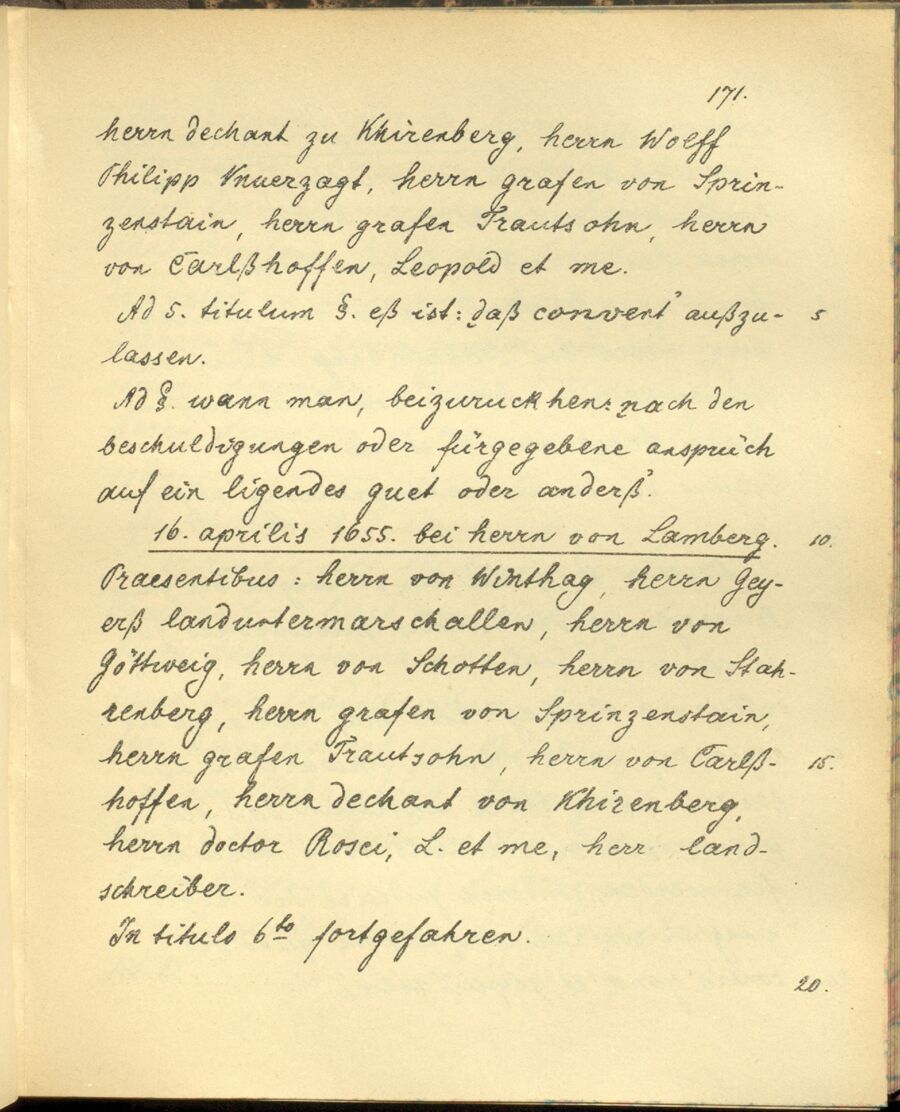 171.
herrn dechant zu Khirenberg, herrn Wolff
Philipp Unverzagt, herrn grafen von Sprin-
zenstain, herrn grafen Trautsohn, herrn
von Carlßhoffen, Leopold et me.
Ad 5. titulum §. eß ist: „daß convent“ außzu- 5
lassen.
Ad §. wann man, beizuruckhen: „nach den
beschuldigungen oder fürgegebene ansprüch
auf ein ligendes guet oder anderß“.
16. aprilis 1655. bei herrn von Lamberg. 10.
Praesentibus: herrn von Winthag, herrn Gey-
erß landuntermarschallen, herrn von
Göttweig, herrn von Schotten, herrn von Stah-
renberg, herrn grafen von Sprinzenstain,
herrn grafen Trautsohn, herrn von Carlß- 15.
hoffen, herrn dechant von Khirenberg,
herrn doctor Rosei, L. et me, herr land-
schreiber.
In titulo 6to fortgefahren.
20.